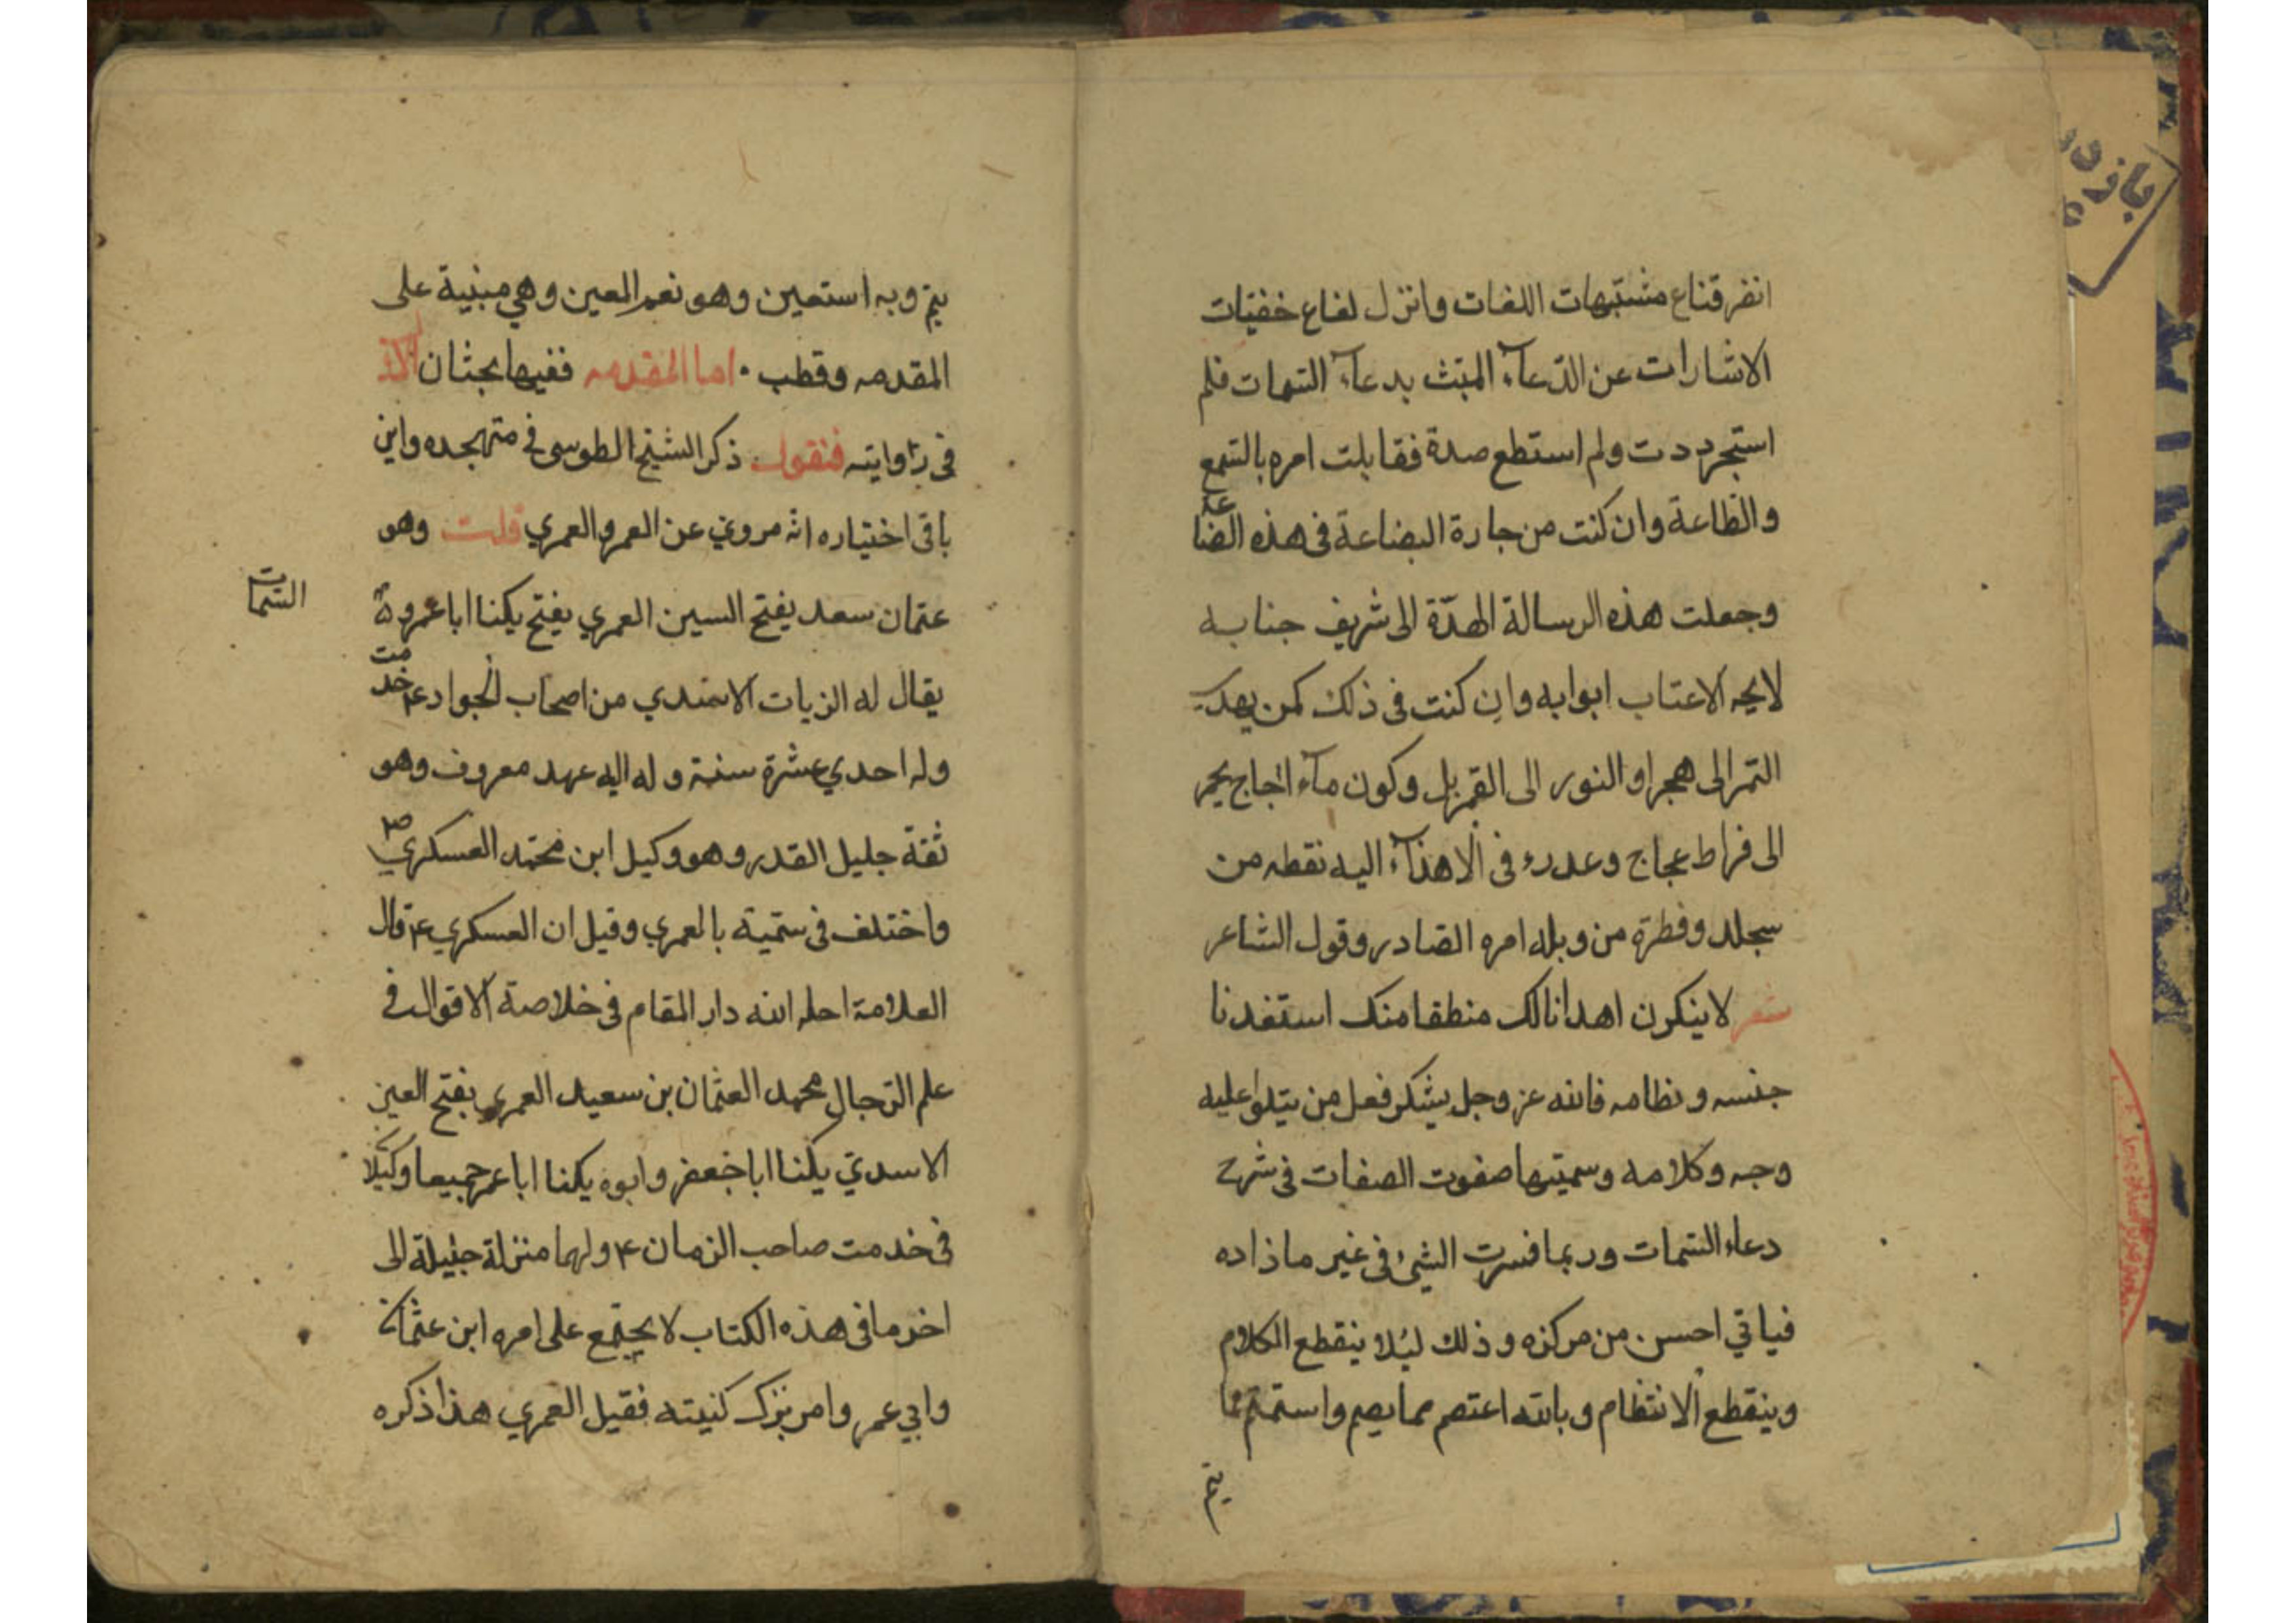 انفر قناع مشتبهات اللغات وانزل لفاع خفيّات
الاشارات عن الدّعآء المبثث بدعآء السّمات فلم
استجر ددت ولم استطع صدة فقابلت امره بالسّمع
والطاعة وان كنت من جارة البضاعة فى هذه الصّناعة
وجعلت هذه الرسالة المهدّة الى شريف جنابه
لايحه الاعتاب ابوابه وان كنت فى ذلك كمن يهدى
التمر الى هجر او النور الى القمر بل وكون مآء اجاج يجر
الى فراط عجاج وعدرء فى الاهدآء اليه نقطه من
سجله وفطرة من وبله امره الصّادر وقول الشاعر
شعر لاينكرن اهدانالك منطقا منك استفدنا
جنسه ونظامه فالله عز وجل يشكر فعل من يتلوا عليه
وجه وكلامه وسميتها صفوت الصفات فى شرح
دعاء السّمات وربما فسرت الشئ فى غير ماذاده
فياتي احسن من مركزه وذلك ليُلا ينقطع الكلام
وينقطع الانتظام وبالله اعتصم مما يصم واستمتم مما
يتم
يتم وبه استعين وهو نعم المعين وهي مبنية على
المقدمه وقطب . اما المقدمه ففيها بحثان الاول
فى رواويته فنقول ذكر الشيخ الطوسى فى متهجده وابن
باقى اختياره انّه مروىّ عن العمرو العمري قلت وهو
عثمان سعد يفتح السين العمري يفتح يكنا ابا عمرو
السّمات
يقال له الزيات الاسدي من اصحاب الجواد ع خدمت
وله احدي عشرة سنة وله اليه عهد معروف وهو
ثقة جليل القدر وهو وكيل ابن محمّد العسكري
واختلف فى ستمية بالعمري وقيل ان العسكري ع قال
العلامة احله الله دار المقام فى خلاصة الاقوال فى
علم الرّجال محمد العثمان بن سعيد العمري بفتح العين
الاسديّ يكنا ابا جعفر وابوه يكنا ابا عمر جميعا وكيلا
فى خدمت صاحب الزمان ع ولهما منزلة جليلة الى
اخر ما فى هذه الكتاب لا يجتمع على امره ابن عثمان
وابي عمر وامر بزك كنيته فقيل العمري هذا ذكره